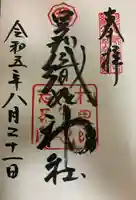 奉拝
呉織神社
令和五年八月二十一日